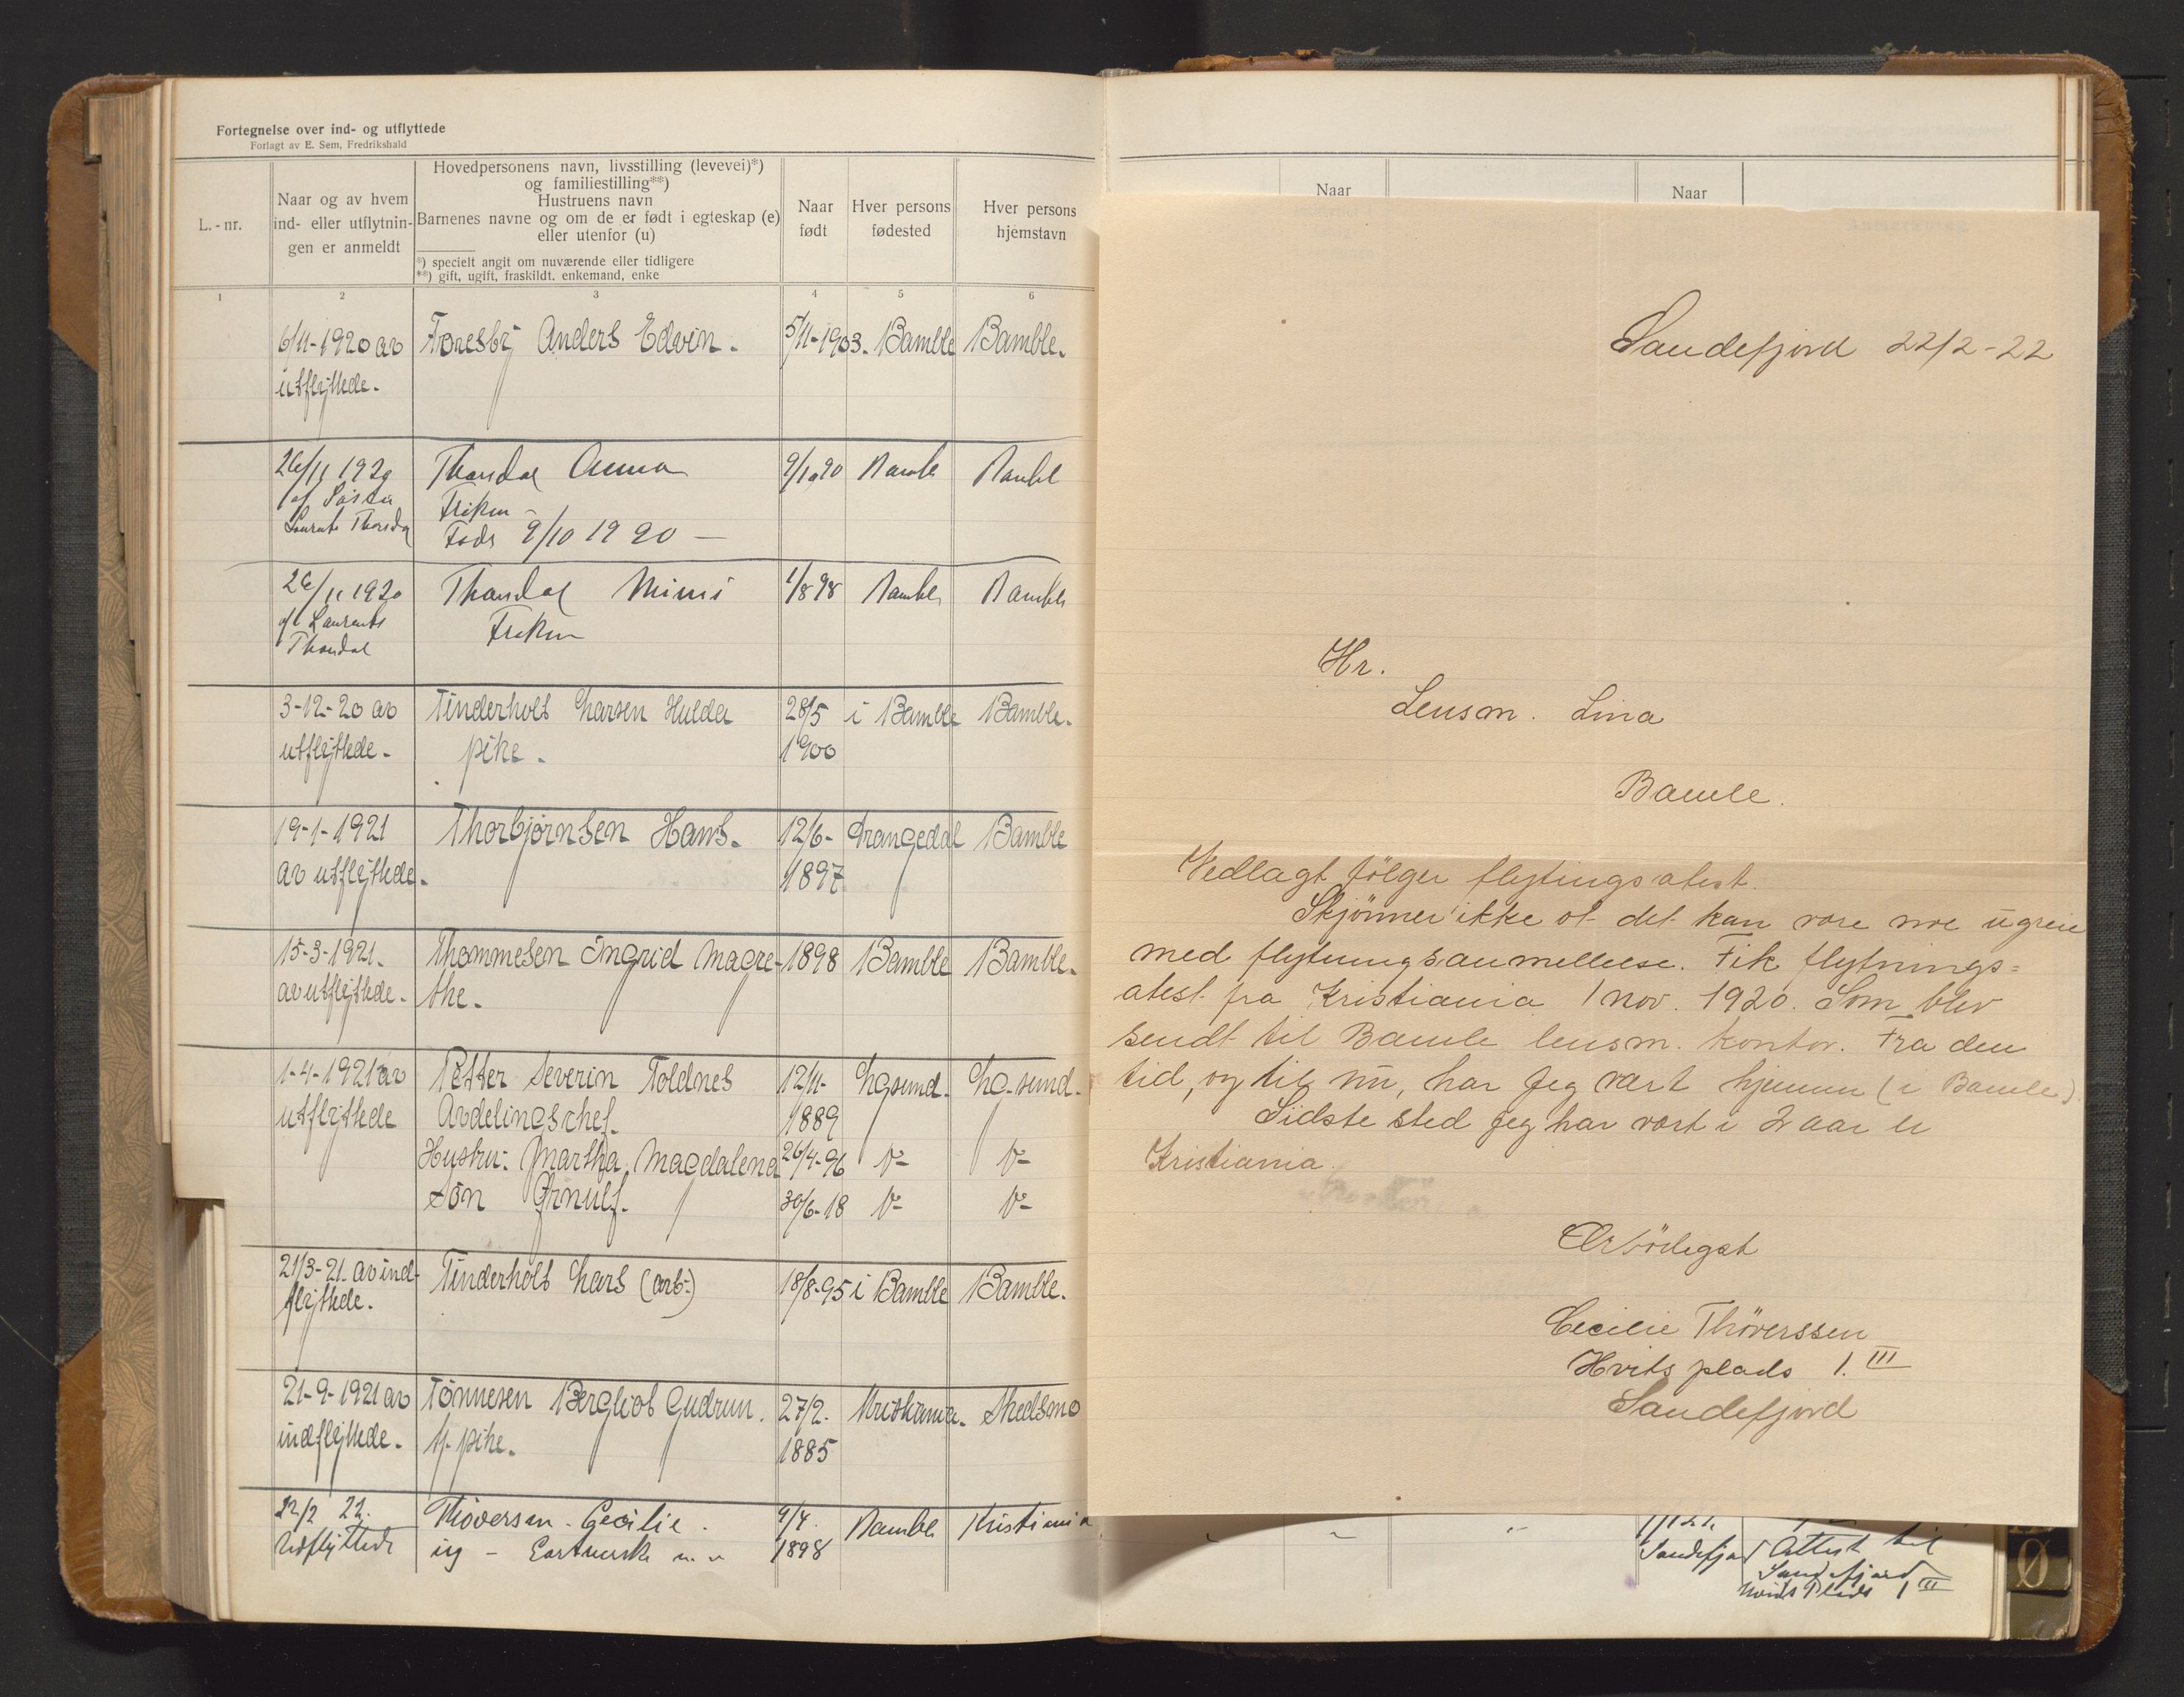 Fortegnelse over ind- og utflyttede
Forlagt av E. Sem, Fredrikshald
L.-nr.
Naar og av hvem
ind- eller utflytnin-
gen er anmeldt
Hovedpersonens navn, livsstilling (levevei)*)
og familiestilling**)
Hustruens navn
Barnenes navne og om de er født i egteskap (e)
eller utenfor (u)
*) specielt angit om nuværende eller tidligere
**) gift, ugift, fraskildt. enkemand, enke
Naar
født
Hver persons
fødested
Hver persons
hjemstavn
1 2 3 4 5 6
6/11-1920 av Anders Edvin. 5/11-1903. Bamble Bamble.
utflyttede.
26/11 1920 Thordal Anna 9/10 90 Bamble Bamble
af Søster Frøken
Laurents Thordal Føds 9/10 1920 —
26/11 1920 Thordal Mimi 1/8 98 Bamble Bamble
af Laurents Frøken
Thordal
3-12-20 av Tinderholt Larsen Hulda 28/5 i Bamble Bamble.
utflyttede. pike. 1900
19-1-1921 Thorbjørnsen Hans. 12/6- Drangedal Bamble
av utflyttede. 1897
15-3-1921. Thommesen Ingrid Magre- 1898 Bamble Bamble.
av utflyttede. the.
1-4-1921 av Petter Severin Toldnes 12/11- Lgsund. Lg.sund.
utflyttede Avdelingschef. 1889
Hustru: Martha Magdalena 26/4-96
Søn Ørnulf. 30/6-18
21/3-21. av ind- Tinderholt Lars (arb.) 18/8-95 i Bamble Bamble.
flyttede.
21-9-1921 av Tönnesen Bergliot Gudrun. 27/2- Kristiania. Skedsmo
indflyttede. tj. pike. 1885
22/2 22. Thöversen Cecilie. 9/4. Bamble Kristiania
Utflyttede ug - 1898
Naar
Naar
Sandefjord 22/2-22
Hr.
Lensm. Lina
Bamle.
Vedlagt fölger flytingsatest.
Skjönner ikke at det kan være noe ugreie
med flytningsanmellelse. Fik flytnings=
atest fra Kristiania 1 nov. 1920. Som blev
sendt til Bamle lensm. kontor. Fra den
tid, og til nu, har Jeg vært hjemme (i Bamle).
Sidste sted Jeg har vært i 2 aar er
Kristiania.
Ærbödigst
Cecilie Thöverssen
Hvits plads 1. III
Sandefjord
Sandefjord Attest til
Sandefjord
Hvids Plads 1 III
Ø